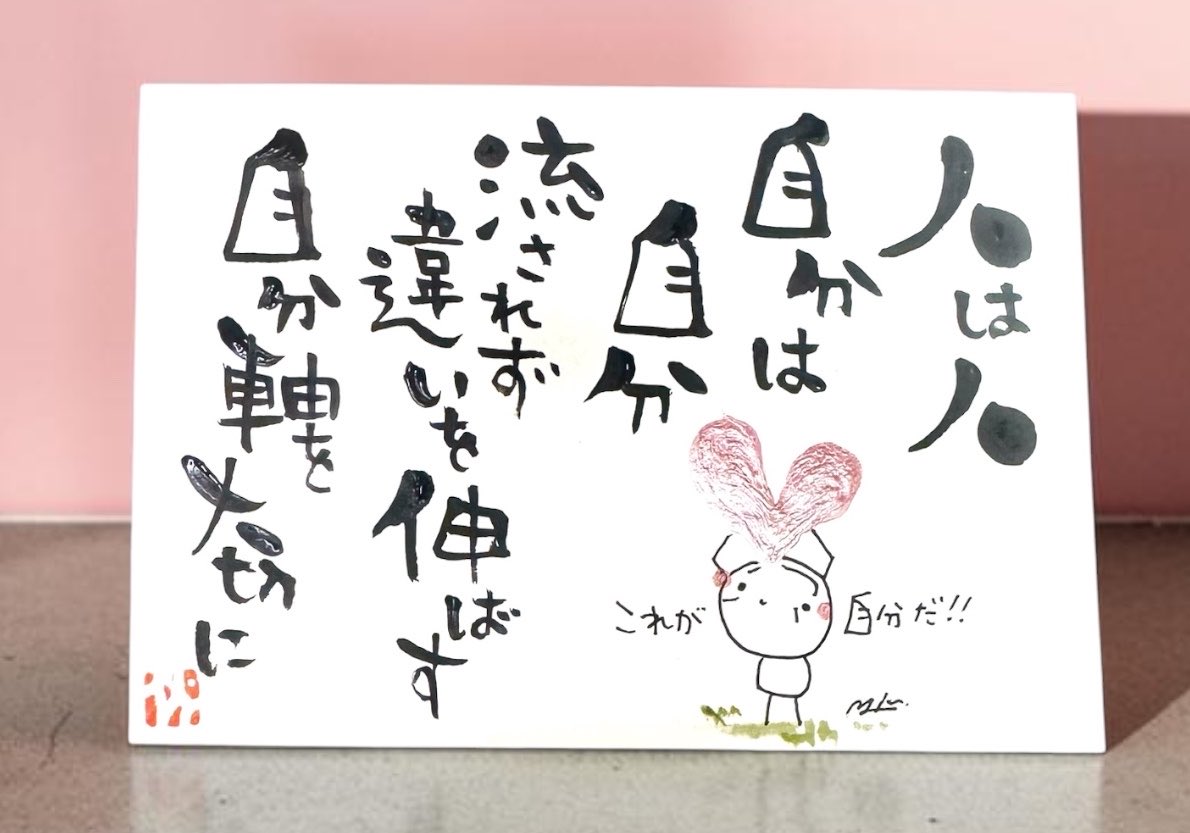 人は人
自分は
自分
流されず
違いを伸ばす
自分軸を大切に
これが 自分だ!!